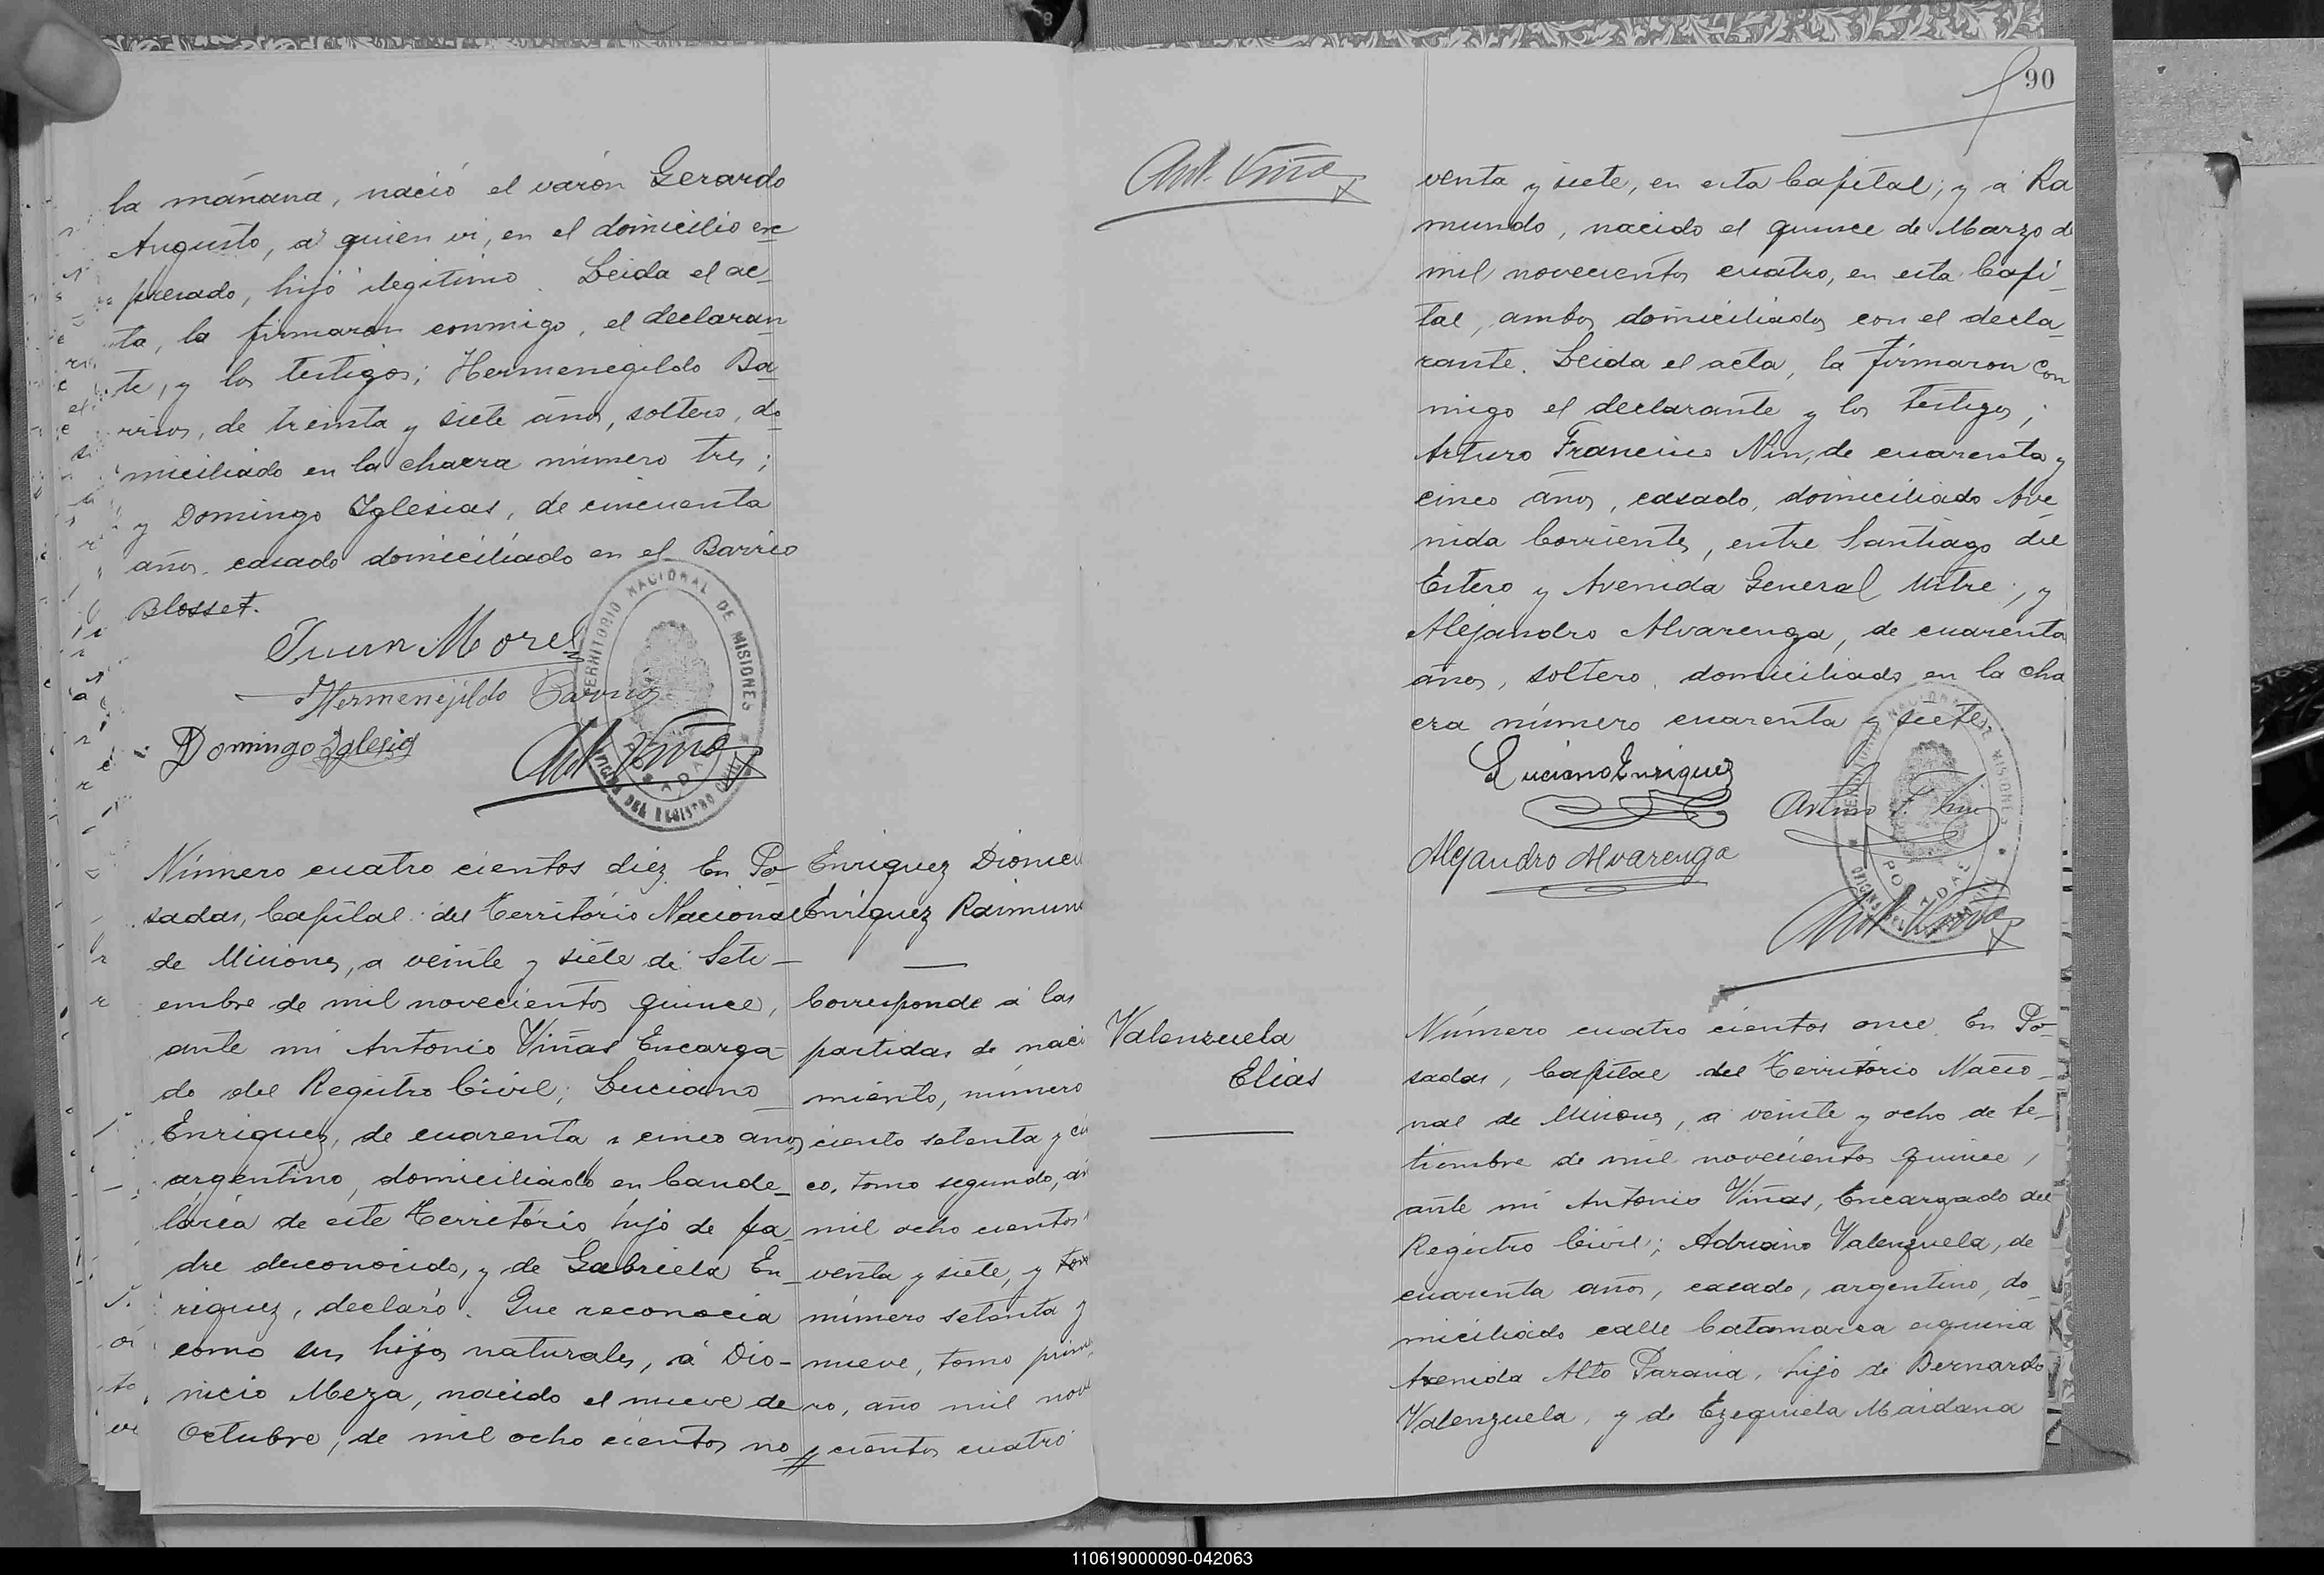 la mañana, nació el varón Gerardo
Augusto, a quien vi, en el domicilio ex
presado, hijo ilegitimo. Leida el ac_
ta, la firmaron conmigo, el declaran
te, y los testigos; Hermenegildo Ba_
rrios, de treinta y siete años, soltero, do_
miciliado en la chacra número tres;
y Domingo Iglesias, de cincuenta
años, casado domiciliado en el Barrio
Blosset.
Juan Morel
Hermenejildo Barrios
Domingo Iglesias
Ant. Viñas
TERRITORIO NACIONAL DE MISIONES
OFICINA DEL REGISTRO CIVIL
POSADAS
Número cuatro cientos diez. En Po_
sadas, Capital del Territorio Nacional
de Misiones, a veinte y siete de Seti_
embre de mil novecientos quince,
ante mi Antonio Viñas Encarga_
do del Registro Civil; Luciano
Enriquez, de cuarenta y cinco años,
argentino, domiciliado en Cande_
laria de este Territorio hijo de pa_
dre desconocido, y de Gabriela En_
riquez, declaró. Que reconocia
como sus hijos naturales, á Dio-
nicio Meza, nacido el nueve de
Octubre, de mil ocho cientos no
Enriquez Dionici
Enriquez Raimun
Corresponde á las
partidas de naci
miento, número
ciento setenta y cin
co, tomo segundo, año
mil ocho cientos
venta y siete, y tom
número setenta y
nueve, tomo prime
ro, año mil nove
cientos cuatro
90
Ant. Viñas
venta y siete, en esta Capital; y á Ra
mundo, nacido el quince de Marzo de
mil novecientos cuatro, en esta Capi_
tal, ambos domiciliados con el decla_
rante. Leida el acta, la firmaron con
migo el declarante y los testigos;
Arturo Francisco Nin, de cuarenta y
cinco años, casado, domiciliado Ave_
nida Corrientes, entre Santiago del
Estero y Avenida General Mitre; y
Alejandro Alvarenga, de cuarenta
años, soltero, domiciliado en la cha
cra número cuarenta y siete.
Luciano Enriquez
Arturo F. Nin
Alejandro Alvarenga
TERRITORIO NACIONAL DE MISIONES
OFICINA DEL REGISTRO CIVIL
POSADAS
Ant. Viñas
Valenzuela
Elias
Número cuatro cientos once. En Po_
sadas, Capital del Territorio Nacio_
nal de Misiones, a veinte y ocho de Se_
tiembre de mil novecientos quince,
ante mi Antonio Viñas, Encargado del
Registro Civil; Adriano Valenzuela, de
cuarenta años, casado, argentino, do_
miciliado calle Catamarca esquina
Avenida Alto Paraná, hijo de Bernardo
Valenzuela, y de Ezequiela Maidana
110619000090-042063